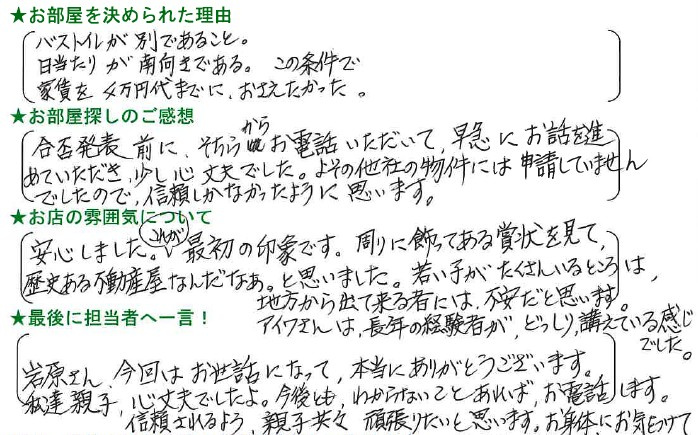 ★お部屋を決められた理由
バストイレが別であること。
日当たりが南向きである。この条件で
家賃を4万円代までに、おさえたかった。
★お部屋探しのご感想
合否発表前に、そちらからお電話いただいて、早急にお話を進
めていただき、少し心丈夫でした。よその他社の物件には申請していません
でしたので、信頼しかなかったように思います。
★お店の雰囲気について
安心しました。これが最初の印象です。周りに飾ってある賞状を見て、
歴史ある不動産屋なんだなぁ。と思いました。若い子がたくさんいるところは、
地方から出て来る者には、不安だと思います。
アイワさんは、長年の経験者が、どっしり、講えている感じ
でした。
★最後に担当者へ一言！
岩原さん、今回はお世話になって、本当にありがとうございます。
私達親子、心丈夫でしたよ。今後とも、わからないことあれば、お電話します。
信頼されるよう、親子共々頑張りたいと思います。お身体にお気をつけて